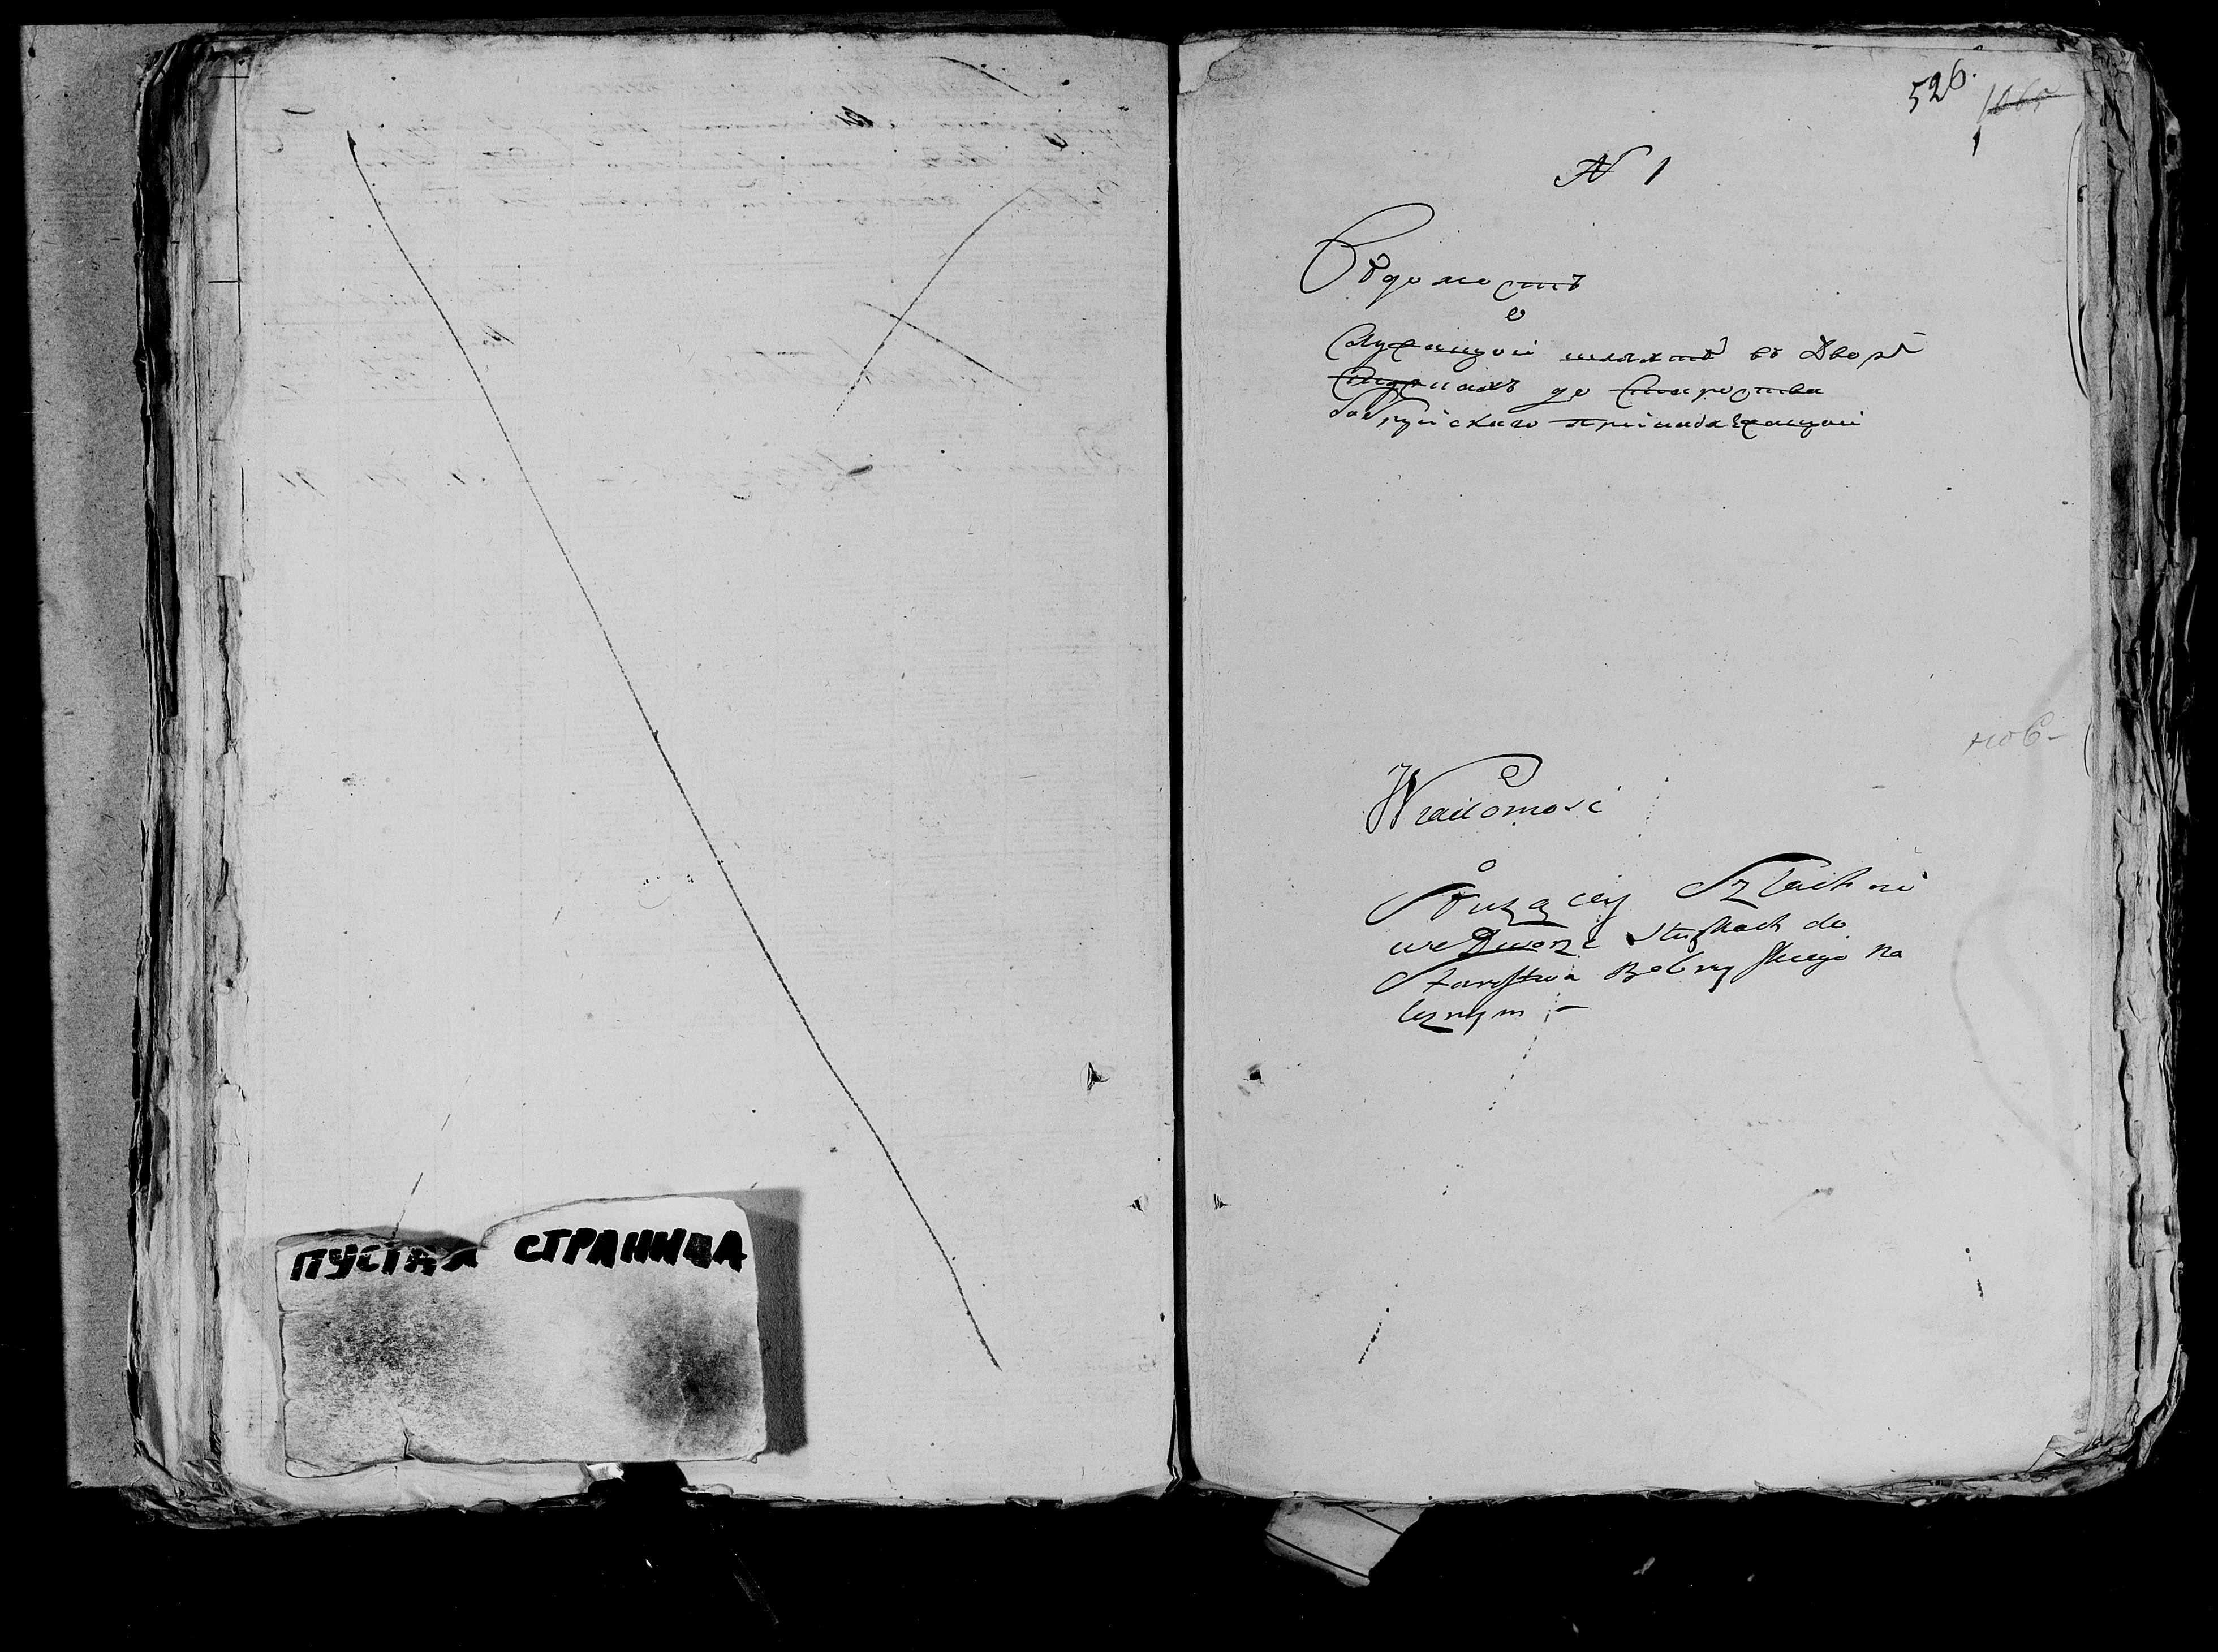 ПУСТАЯ СТРАНИЦА
526.
1
N 1
Вѣдомость
о
Служащои шляхтѣ въ Дворѣ
до Староства
бобруйскаго принадлежащои
Wiadomosc
o
Służącey Szlachcie
we Dworze Stużkach do
Starostwa Bobruyskiego na
leznym –